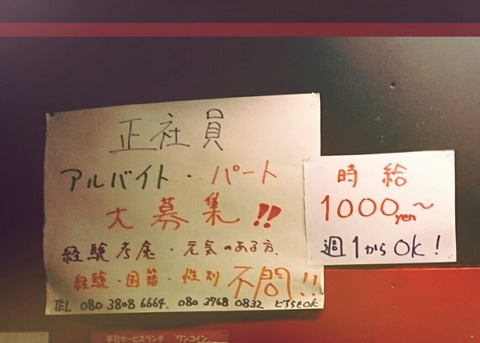 正社員
アルバイト・パート
大募集!!
経験考慮・元気のある方、
経験・国籍・性別 不問!!
TEL 080 3808 6664. 080 3768 0832 どちらもOK
時給
1000yen~
週1からOK!
平日サービスランチ ワンコイン